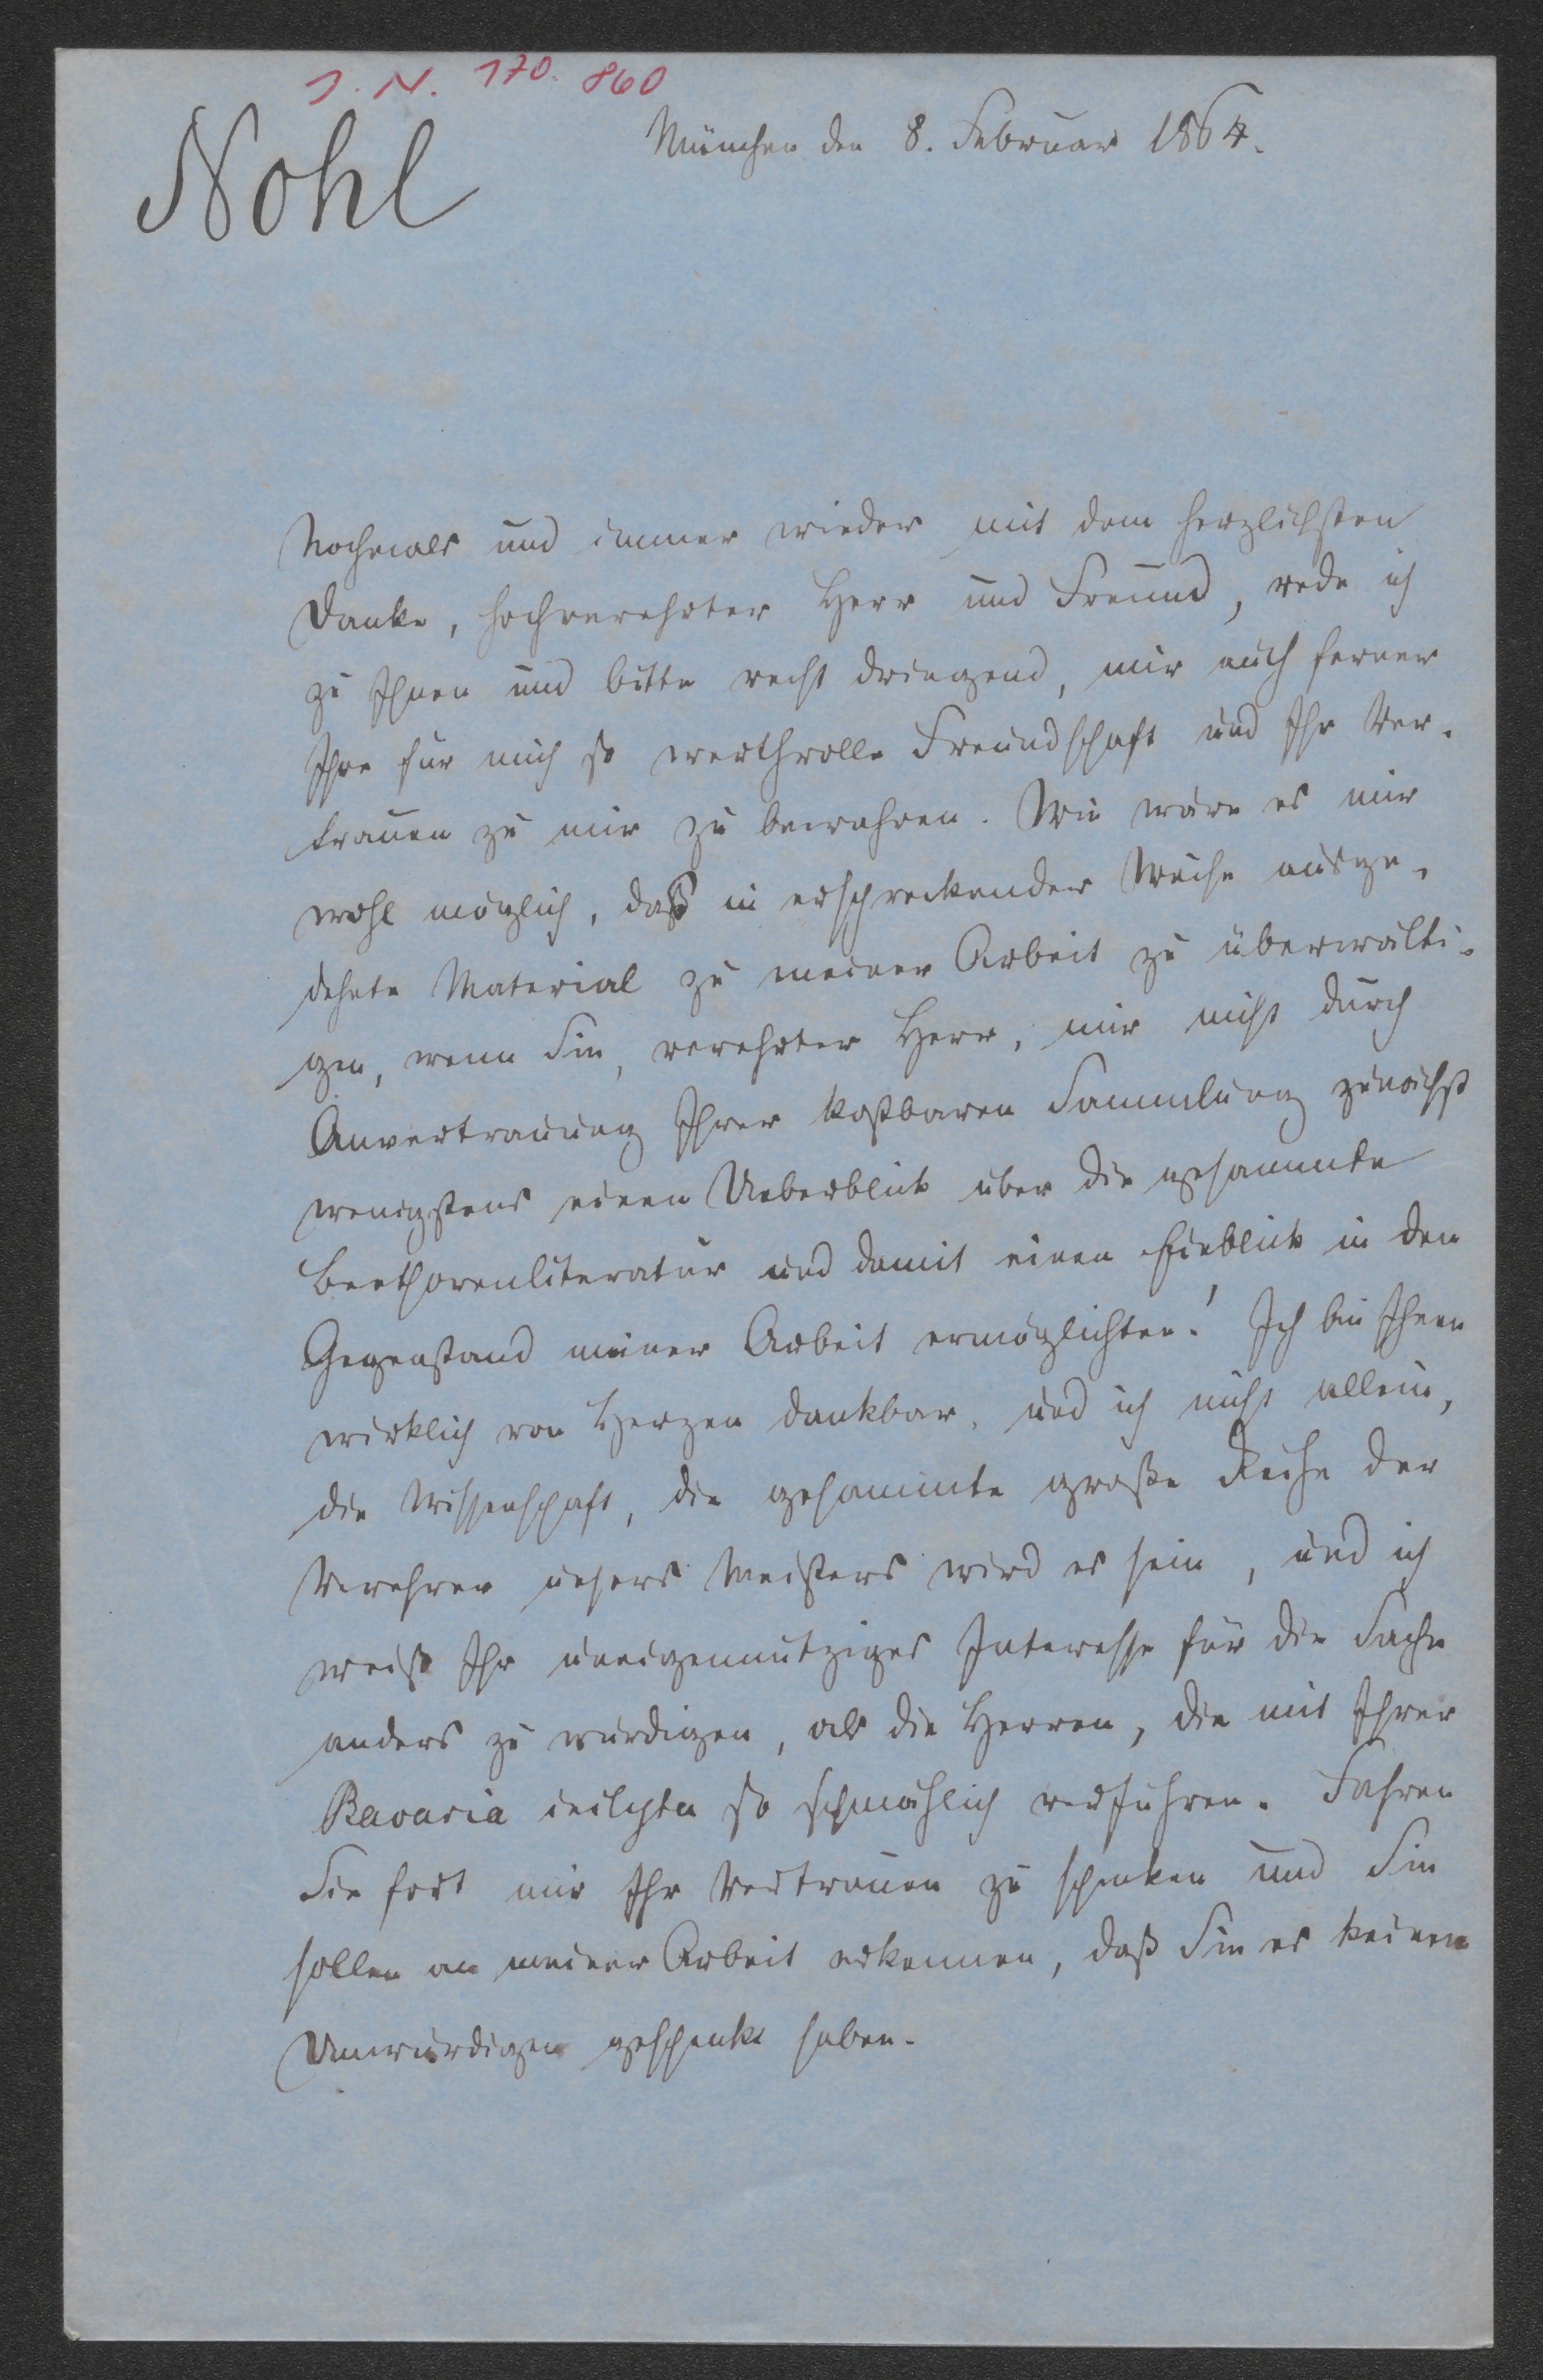 J. N. 170.860
Nohl
München den 8. Februar 1864.
Nochmals und immer wieder mit dem herzlichsten
Danke, hochverehrter Herr und Freund, rede ich
zu Ihnen und bitte recht dringend, mir auch ferner
Ihre für mich so werthvolle Freundschaft und Ihr Ver-
trauen zu mir zu bewahren. Wie wäre es mir
wohl möglich, daß in erschreckender Weise ausge-
dehnte Material zu meiner Arbeit zu überwälti-
gen, wenn Sie, verehrter Herr, mir nicht durch
Anvertrauung Ihrer kostbaren Sammlung zunächst
wenigstens einen Ueberblick über die gesammte
Beethovenliteratur und damit einen Einblick in den
Gegenstand meiner Arbeit ermöglichten! Ich bin Ihnen
wirklich von Herzen dankbar, und ich nicht allein,
die Wissenschaft, die gesammte große Reihe der
Verehrer unsers Meisters wird es sein, und ich
weiß Ihr uneigennütziges Interesse für die Sache
anders zu würdigen, als die Herren, die mit Ihrer
Bavaria so schmählich verfuhren. Fahren
Sie fort mir Ihr Vertrauen zu schenken und Sie
sollen an meiner Arbeit erkennen, daß Sie es keinem
Unwürdigen geschenkt haben.